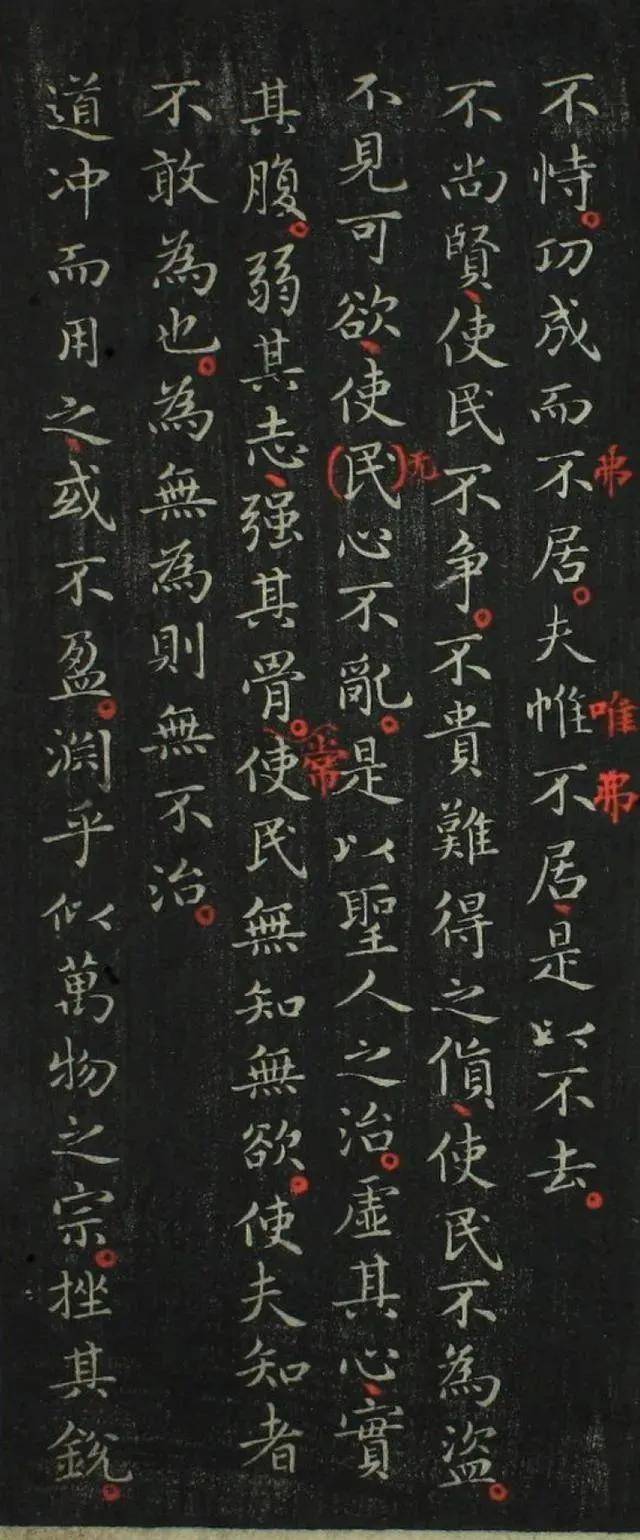 不恃。功成而不居。夫惟不居、是以不去。
弗 唯 弗
不尚賢、使民不争。不貴難得之貨、使民不為盜。
不見可欲、使(民)心不亂。是以聖人之治。虛其心、實
无
其腹。弱其志、强其骨。使民無知無欲。使夫知者
常
不敢為也。為無為則無不治。
道冲而用之、或不盈。淵乎似萬物之宗。挫其銳。